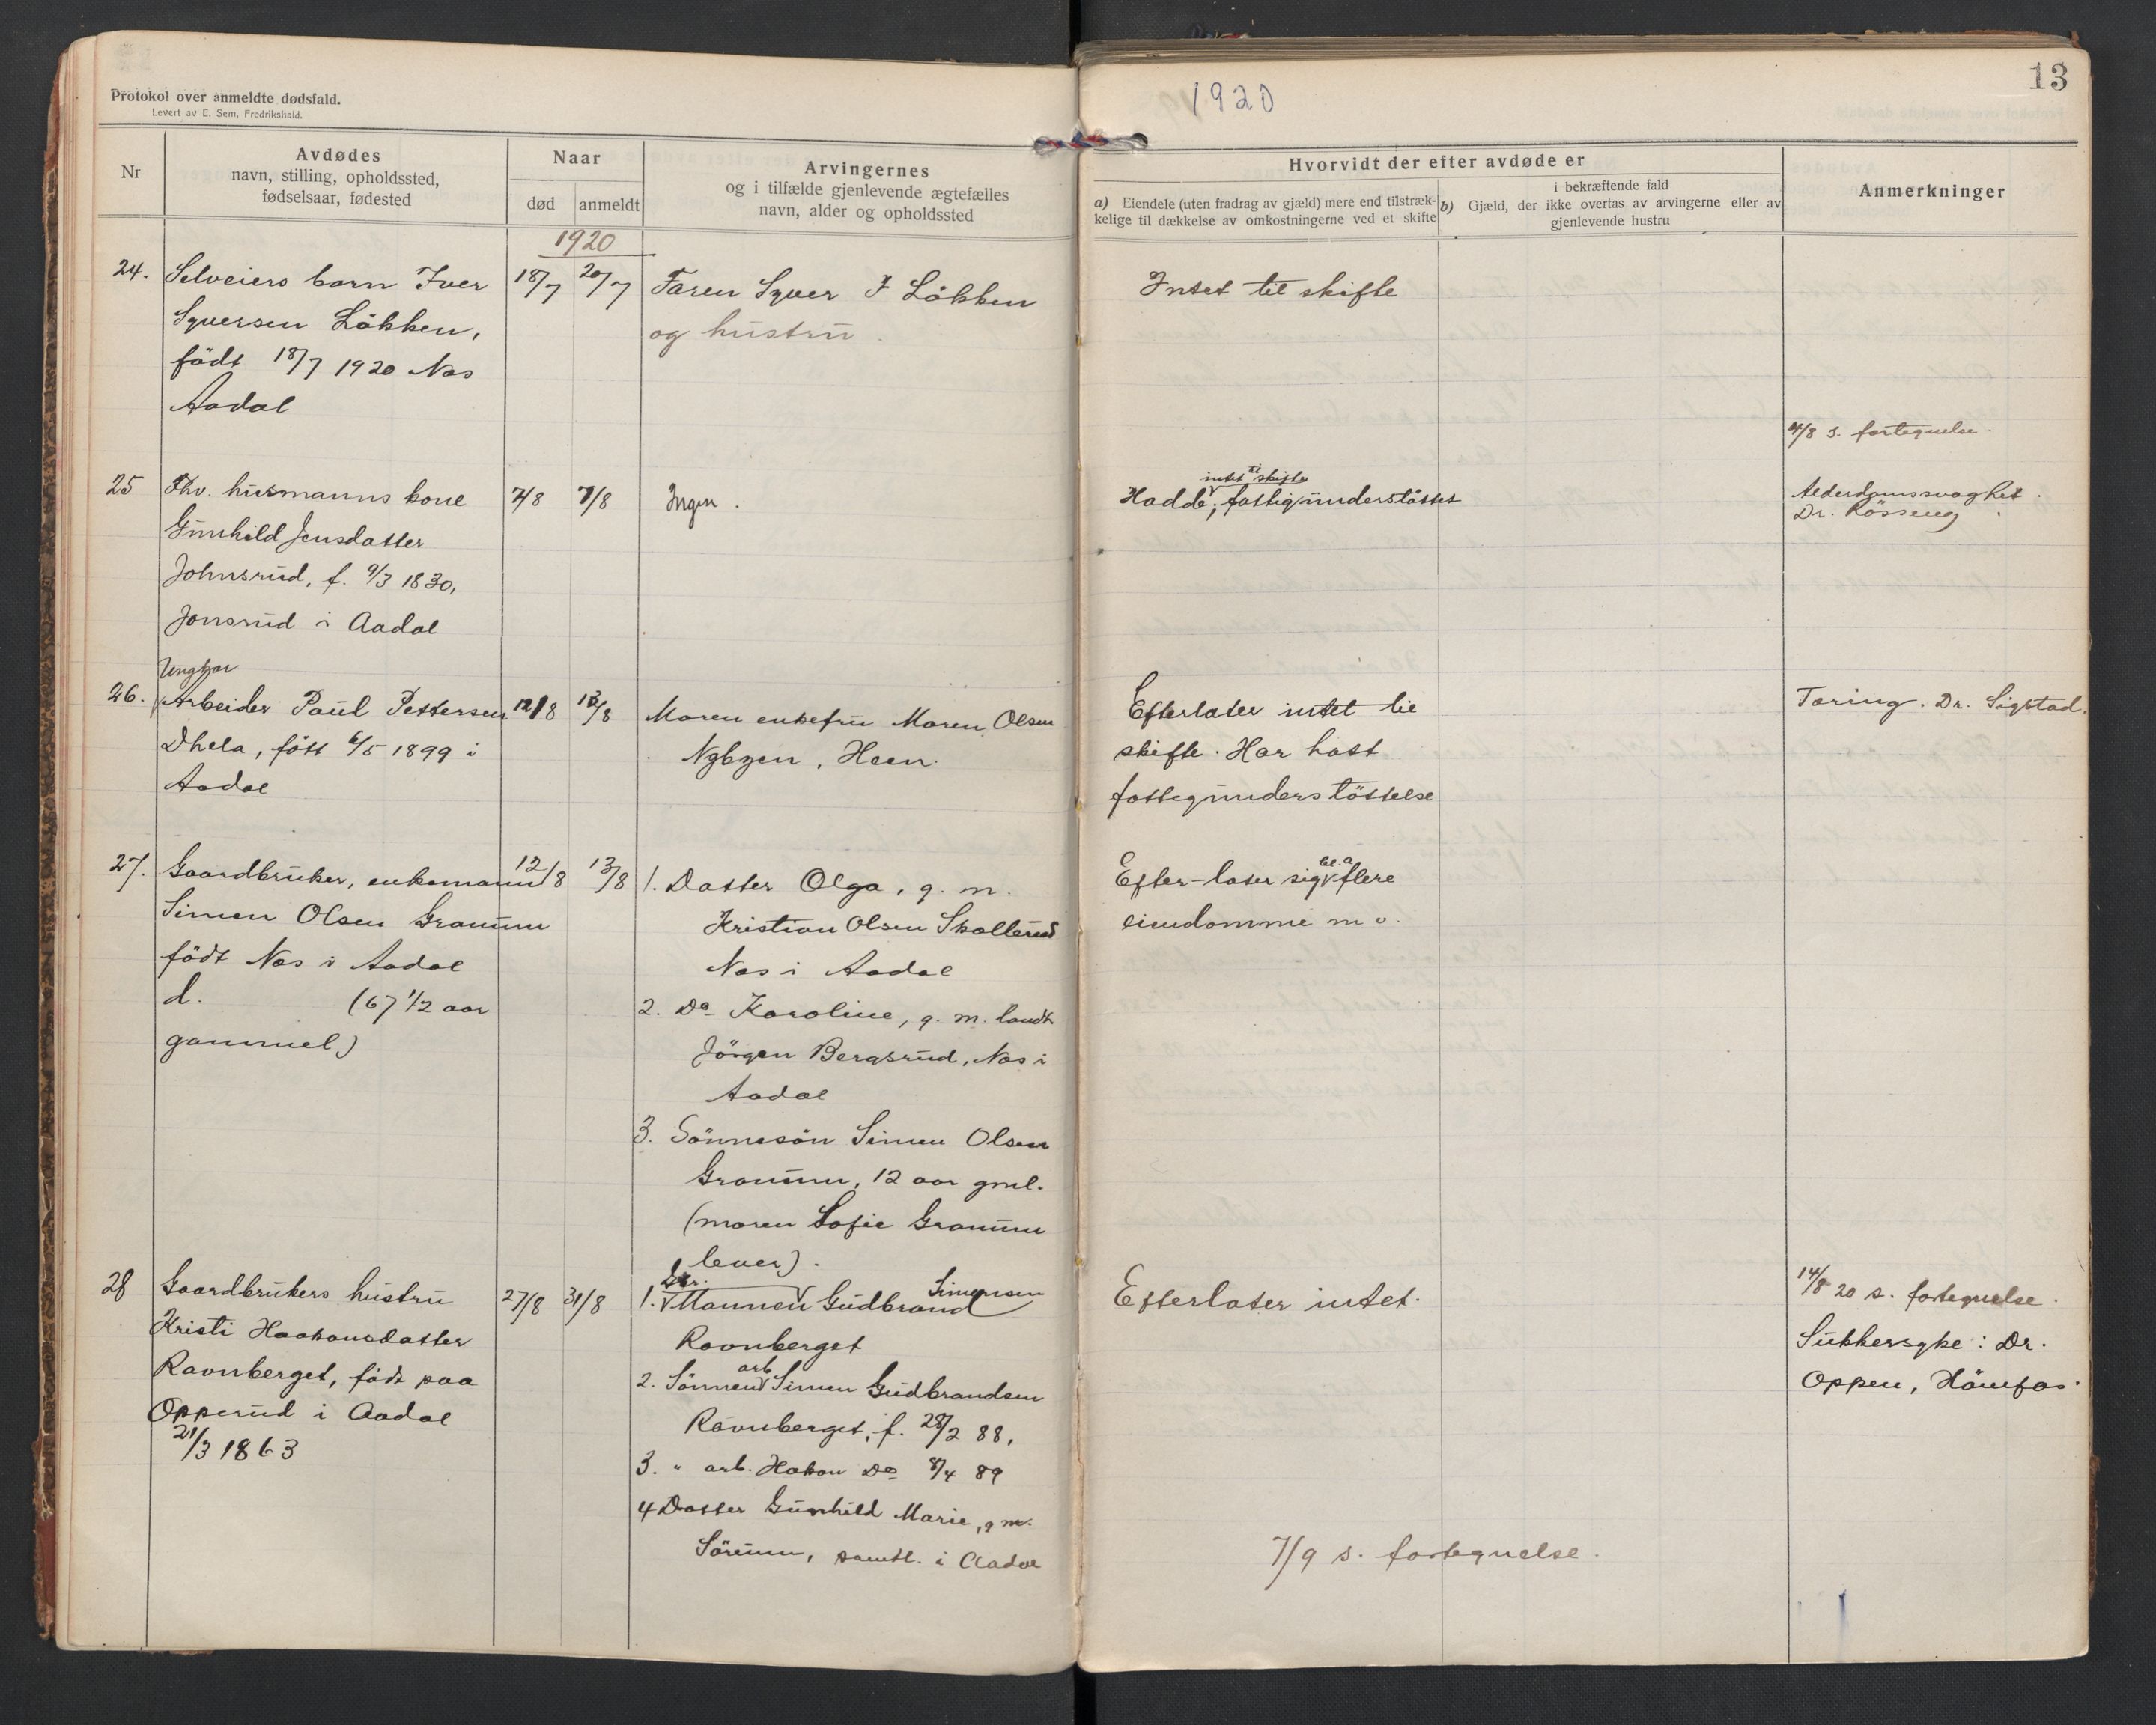 Protokol over anmeldte dødsfald.
Levert av E. Sem, Fredrikshald.
Nr
Avdødes
navn, stilling, opholdssted,
fødselsaar, fødested
Naar
død
anmeldt
Arvingernes
og i tilfælde gjenlevende ægtefælles
navn, alder og opholdssted
1920
24.
Selveiers barn Iver
Syversen Løkken,
født 18/7 1920 Nes
Aadal
18/7
20/7
Faren Syver I Løkken
og hustru
25
Fhv. husmanns kone
Gunhild Jensdatter
Johnsrud, f. 9/3 1830,
Jonsrud i Aadal
7/8
Ingen.
Ungkar
26.
Arbeider Paul Pettersen
født 6/5 1899 i
Aadal
12/8
13/8
Moren enkefru Maren Olsen
Heen.
27.
Gaardbruker, enkemann
Simen Olsen
født Nes i Aadal
d. (67 1/2 aar
gammel)
12/8
13/8
1. Datter Olga, g. m.
Kristian Olsen Skollerud
Nes i Aadal
2. Do Karoline, g. m. landh
Jörgen Bergsrud, Nes i
Aadal
3. Sönnesön Simen Olsen
12 aar gml.
(moren Sofie
lever).
28
Gaardbrukers hustru
Kristi Haakonsdatter
Ravnberget, født paa
Opperud i Aadal
21/3 1863
27/8
31/8
1. Mannen Gudbrand Simensen
Ravnberget
2. Sönnen arb Simen Gudbrandsen
Ravnberget, f. 28/2 88,
3. " arb. Hakon Do 8/4 89
4 Datter Gunhild Marie, g m.
samtl. i Aadal
1920
13
Hvorvidt der efter avdøde er
a) Eiendele (uten fradrag av gjæld) mere end tilstræk-
kelige til dækkelse av omkostningerne ved et skifte
i bekræftende fald
b) Gjæld, der ikke overtas av arvingerne eller av
gjenlevende hustru
Anmerkninger
Intet til skifte
4/8 s. fortegnelse.
intet til skifte
Hadde; fattigunderstøttet
Alderdomssvaghet.
Dr.
Efterlater intet til
skifte. Har hatt
fattegunderstöttelse
Tæring. Dr. Sigstad.
Efter-later sig bl.a flere
eiendomme m v.
14/8 20 s. fortegnelse.
Efterlater intet.
Sukkersyke: Dr.
Oppen, Hönefos.
7/9 s. fortegnelse.